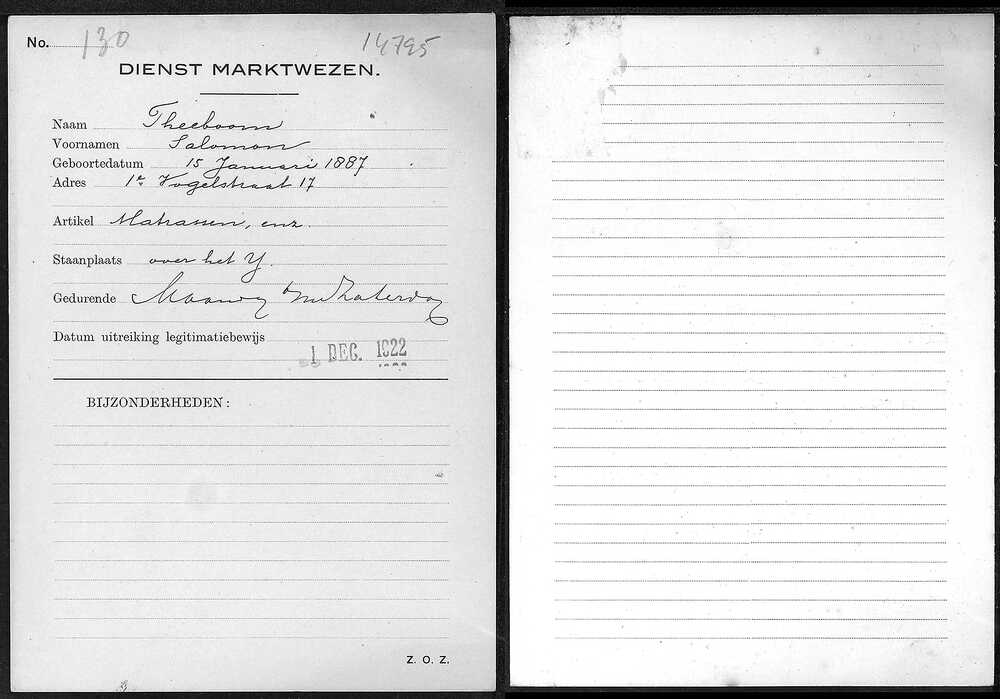 No. 130 14795
DIENST MARKTWEZEN.
Naam Theeboom
Voornamen Salomon
Geboortedatum 15 Januari 1887
Adres 1e Vogelstraat 17
Artikel Matrassen, enz.
Staanplaats over het Y.
Gedurende Maandag Zaterdag
Datum uitreiking legitimatiebewijs
1 DEC. 1922
BIJZONDERHEDEN:
Z. O. Z.